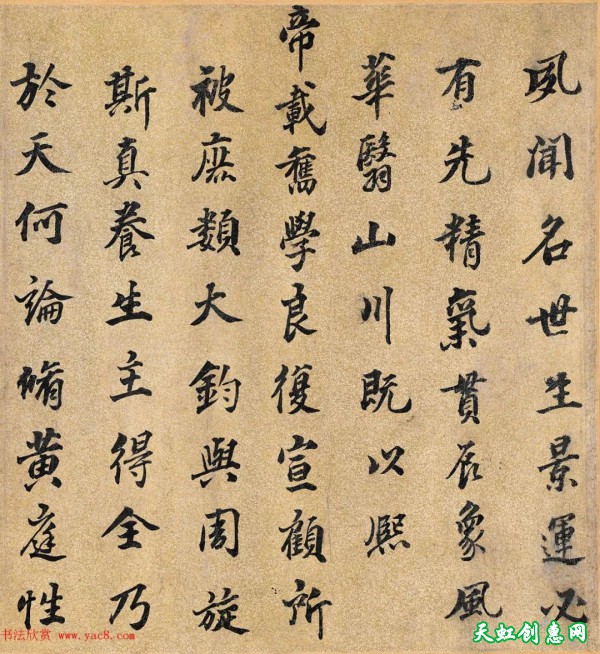 夙聞名世生景運必
有先精氣貫辰象風
華翳山川既以熙
帝載舊學良復宣顧所
被庶類大鈞與周旋
斯真養生主得全乃
於天何論脩黃庭性
书法欣赏 www.yac8.com
天虹创惠网